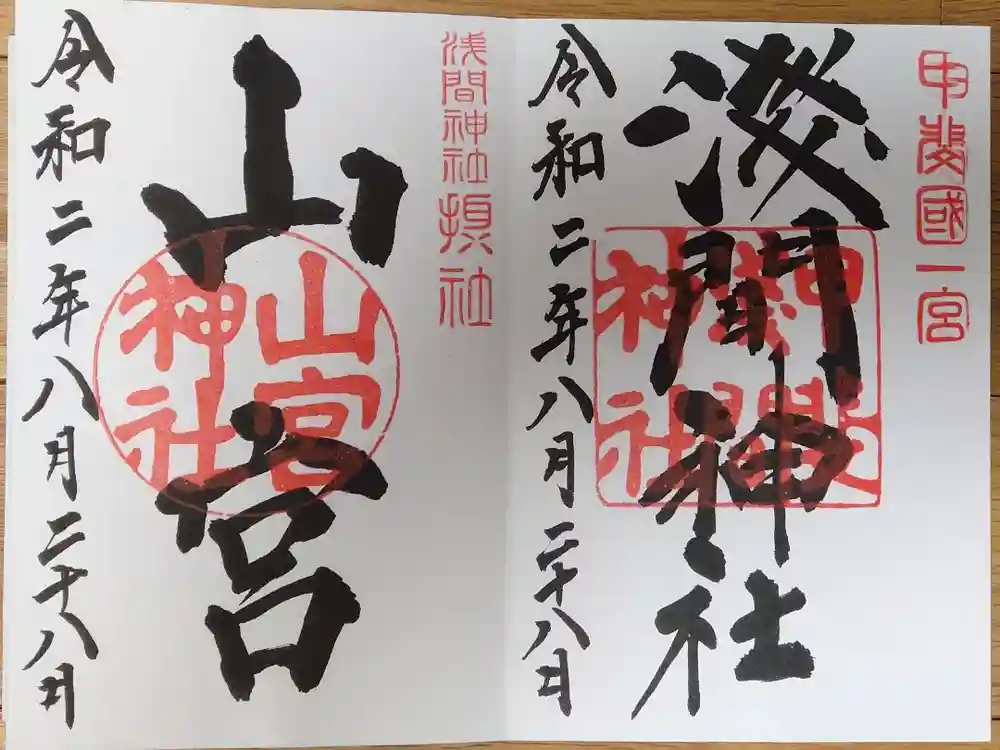 甲斐國一宮
淺間神社
令和二年八月二十八日
浅間神社摂社
山宮
山宮神社
令和二年八月二十八日